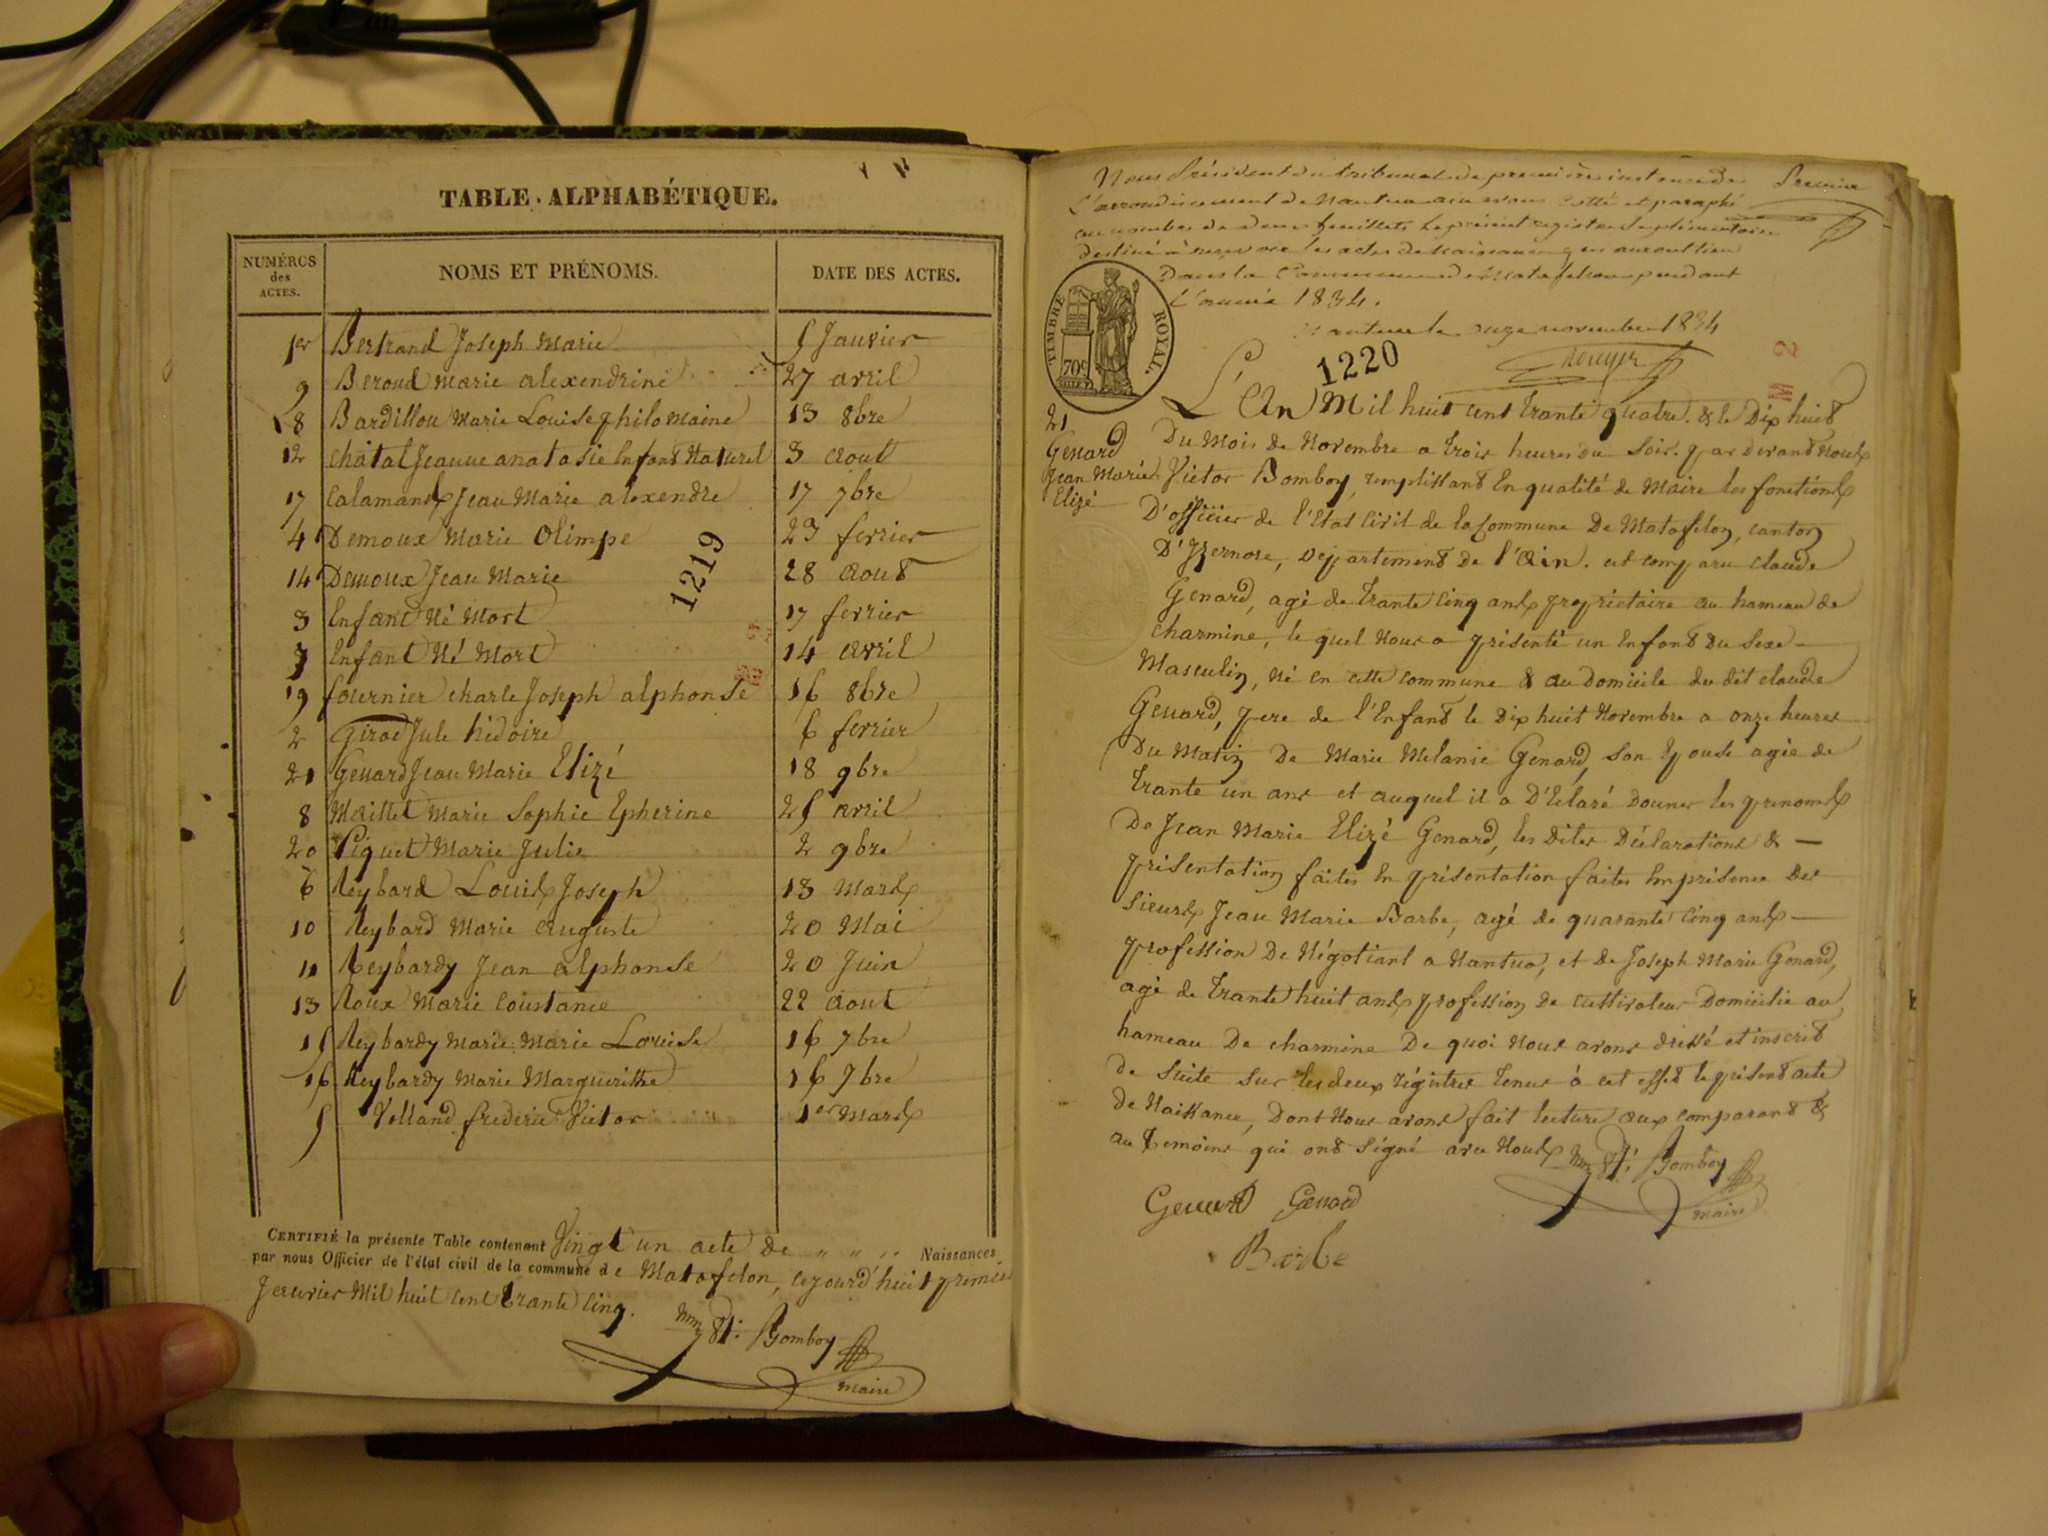 TABLE ALPHABÉTIQUE.
NUMÉROS des ACTES. NOMS ET PRÉNOMS. DATE DES ACTES.
1er Bertrand Joseph Marie 5 Janvier
9 Beroud marie alexendrine 27 avril
18 Bardillou Marie Louise philomaine 13 8bre
12 chatal Jeanne anatasie Enfant Naturel 3 aout
17 Calamand Jean Marie alexendre 17 7bre
4 Demoux Marie Olimpe 23 fevrier
14 Demoux Jean Marie 28 aout
1219
3 Enfant Né Mort 17 fevrier
7 Enfant Né Mort 14 avril
19 fournier charle Joseph alphonse 16 8bre
2 Girod Jule 6 fevrier
21 Genard Jean Marie Elizé 18 9bre
8 Maillet Marie Sophie Epherine 25 avril
20 Piquet Marie Julie 2 9bre
6 Reybard Louis Joseph 13 Mars
10 Reybard Marie Auguste 20 Mai
11 Reybardy Jean alphonse 20 Juin
13 Roux Marie Coustance 22 aout
15 Reybardy Marie Marie Louise 16 7bre
16 Reybardy Marie Marguerithe 16 7bre
5 Volland frederic Victor 1er Mars
CERTIFIÉ la présente Table contenant Vingt un acte de " " " Naissances
par nous Officier de l'état civil de la commune de Matafelon, cejourd'hui 1 premier
Janvier Mil huit cent trante cinq.
Bomboy
maire
Nous Président du tribunal de première instance de Premier
L'arrondissement de Nantua avons cotté et paraphé
au nombre de deux feuillets le présent registre suplémentaire
destiné à recevoir les actes de Naissance qui auront lieu
Dans la Commune de Matafelon pendant
L'année 1834.
Nantua le onze novembre 1834
TIMBRE ROYAL.
70c
1220
21
Genard
Jean Marie
Elizé
L'An Mil huit cent trante quatre. & le Dix huit
Du Mois de Novembre a trois heures du Soir. par devant Nous
Victor Bomboy, remplissant En qualité de Maire les fonctions
D'officier de l'Etat Civil de la Commune De Matafelon, canton
D'Izernore, Departement de l'Ain. est comparu claude
Genard, agé de trante cinq ans propriétaire au hameau de
charmine, le quel Nous a présenté un Enfant du Sexe
Masculin, né en cette commune & au Domicile du dit claude
Genard, pere de l'Enfant le Dix huit Novembre a onze heures
Du Matin De Marie Melanie Genard, son Epouse agée de
trante un ans et auquel il a D'Eclaré Donner les prenoms
De Jean Marie Elizé Genard, les dites Déclarations &
présentation faites En présentation faites En présence des
Sieurs Jean Marie Barbe, agé de quarante cinq ans
profession De Négotiant a Nantua, et de Joseph Marie Genard,
agé de trante huit ans profession de cultivateur Domicilié au
hameau De charmine De quoi Nous avons dressé et inscrit
de Suite sur les deux régistres tenus à cet effet le présent acte
De Naissance, Dont Nous avons fait lecture aux comparant &
au temoins qui ont Signé avec Nous
Bomboy
maire
Genard Genard
Barbe